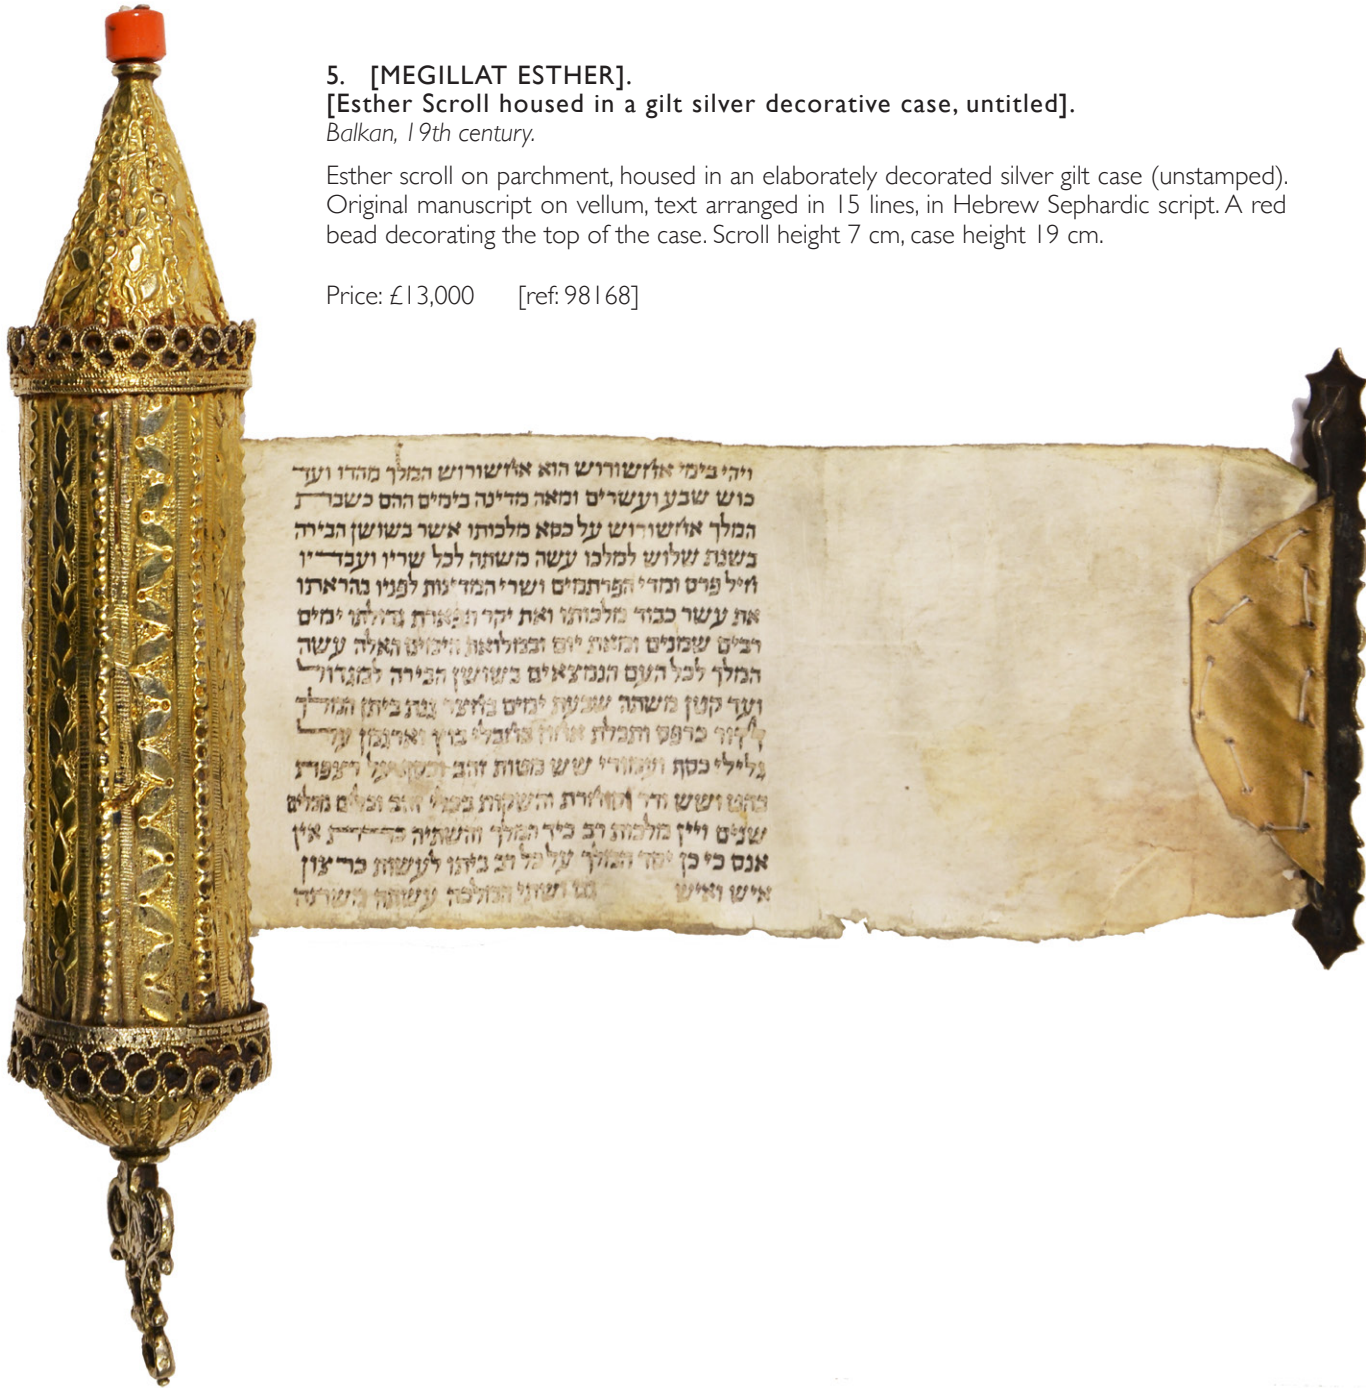 5. [MEGILLAT ESTHER].
[Esther Scroll housed in a gilt silver decorative case, untitled].
Balkan, 19th century.
Esther scroll on parchment, housed in an elaborately decorated silver gilt case (unstamped).
Original manuscript on vellum, text arranged in 15 lines, in Hebrew Sephardic script. A red
bead decorating the top of the case. Scroll height 7 cm, case height 19 cm.
Price: £13,000 [ref: 98168]
ויהי בימי אחשורוש הוא אחשורוש המלך מהדו ועד
כוש שבע ועשרים ומאה מדינה בימים ההם כשבת
המלך אחשורוש על כסא מלכותו אשר בשושן הבירה
בשנת שלוש למלכו עשה משתה לכל שריו ועבדיו
חיל פרס ומדי הפרתמים ושרי המדינות לפניו בהראתו
את עשר כבוד מלכותו ואת יקר תפארת גדולתו ימים
רבים שמנים ומאת יום ובמלואת הימים האלה עשה
המלך לכל העם הנמצאים בשושן הבירה למגדול
ועד קטן משתה שבעת ימים בחצר גנת ביתן המלך
כרפס ותכלת אחוז בחבלי בוץ וארגמן על
גלילי כסף ועמודי שש מטות זהב וכסף על רצפת
בהט ושש ודר וסחרת והשקות בכלי זהב וכלים מכלים
שונים ויין מלכות רב כיד המלך והשתיה כדת אין
אנס כי כן יסד המלך על כל רב ביתו לעשות כרצון
איש ואיש גם ושתי המלכה עשתה משתה